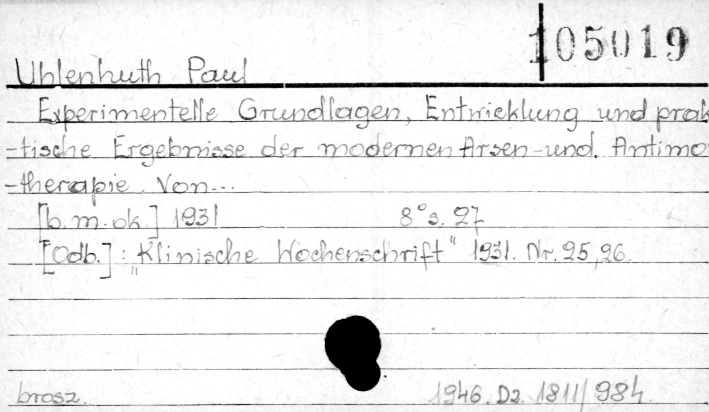 105019
Uhlenhuth Paul
Experimentelle Grundlagen, Entwicklung und prak
-tische Ergebnisse der modernen Arsen-und. Antimo
-therapie. Von...
[b.m.ok.] 1931 8° s. 27
[Odb.]: "Klinische Wochenschrift" 1931. Nr. 25, 26.
brosz. 1946. Dz. 1811/984.